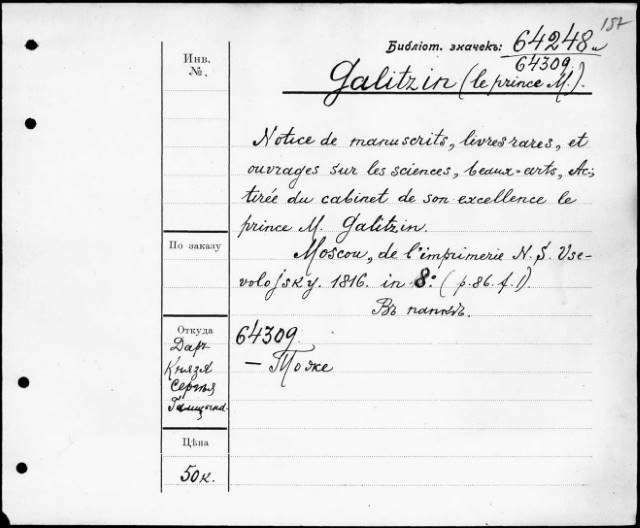 157
Библіот. значекъ: 64248 и
64309.
Инв.
№.
Galitzin (le prince M.).
Notice de manuscrits, livres rares, et
ouvrages sur les sciences, beaux-arts, &c;
tirée du cabinet de son excellence le
prince M. Galitzin.
По заказу
Moscou, de l'imprimerie N. S. Vse-
volojsky. 1816. in 8: (p. 86. f. 1).
Въ папкѣ.
Откуда
Даръ
Князя
Сергѣя
Голицына.
64309.
— Тоже
Цѣна
50 к.